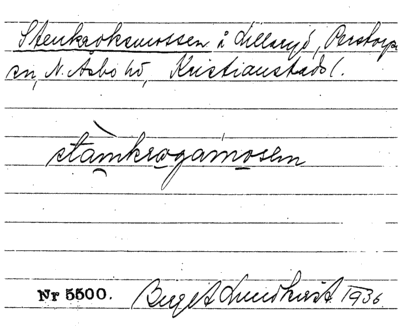 Stenkroksmossen å Lillaryd, Perstorps
sn, N. Åsbo hd, Kristianstads l.
stàmkrogamosen
Nr 5500. Birget Lundkvist 1936